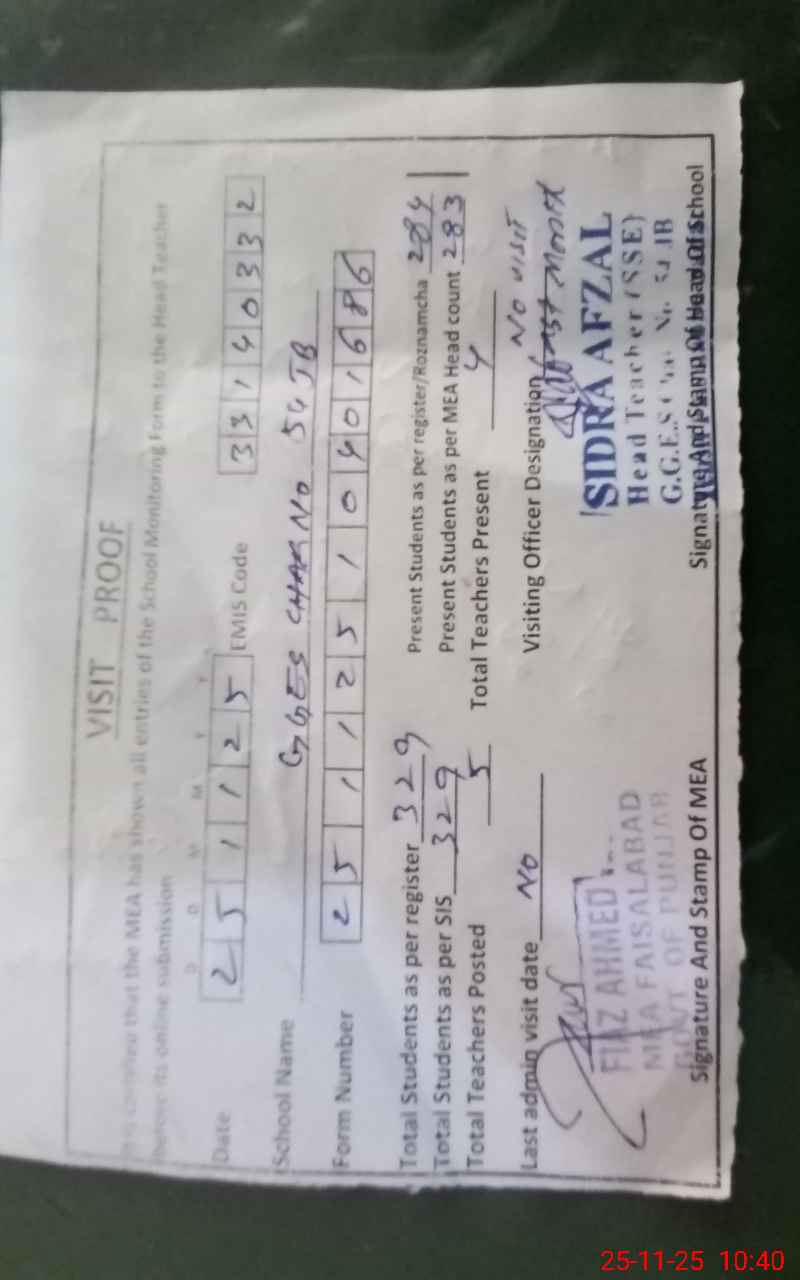 VISIT PROOF
It is certified that the MEA has shown all entries of the School Monitoring Form to the Head Teacher
before its online submission
D D M M Y Y
Date 2 5 1 1 2 5 EMIS Code 3 3 1 4 0 3 3 2
School Name GGES CHAK NO 54 JB
Form Number 2 5 1 1 2 5 1 0 4 0 1 6 8 6
Total Students as per register 329 Present Students as per register/Roznamcha 284
Total Students as per SIS 329 Present Students as per MEA Head count 283
Total Teachers Posted 5 Total Teachers Present 4
Last admin visit date NO Visiting Officer Designation NO VISIT
Last Month
FIAZ AHMED
MEA FAISALABAD
GOVT OF PUNJAB
SIDRA AFZAL
Head Teacher (SSE)
G.G.E.S Chak No. 54 JB
Signature And Stamp Of MEA Signature And Stamp Of Head Of School
25-11-25 10:40